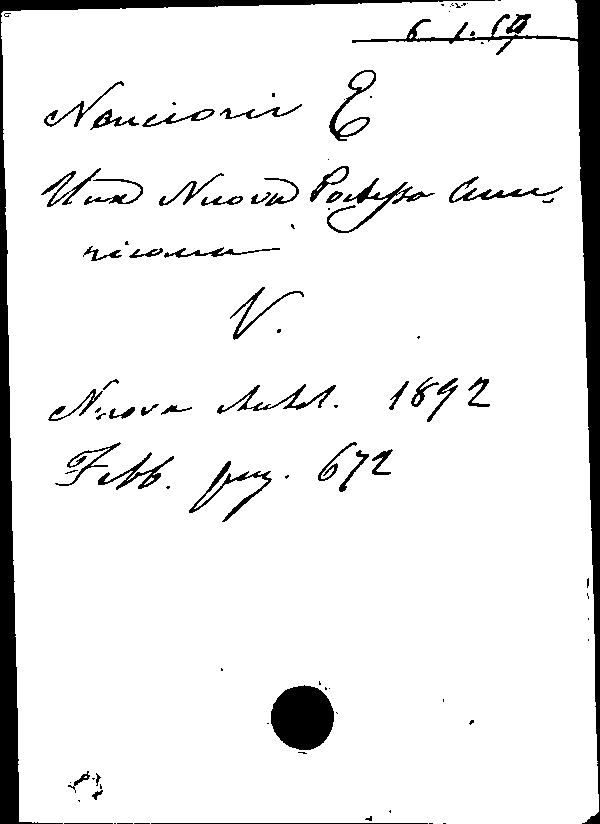 6. 1. 59
Nencioni E
Una Nuova Poetessa Ame-
ricana
V.
Nuova Antol. 1892
Febb. pag. 672